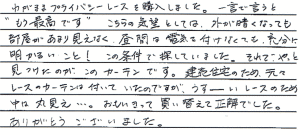 わがままプライバシーレースを購入しました。一言で言うと
"もう最高です" こちらの意見としては、外が暗くなっても
部屋があまり見えなく、昼間は電気を付けなくても、充分に
明かるいこと！この条件で探していました。それでやっと
見つけたのがこのカーテンです。建売住宅のため、元々
レースのカーテンは付いていたのですが、うすーいレースのため
中は丸見え…。おもいきって買い替えて正解でした。
ありがとうございました。